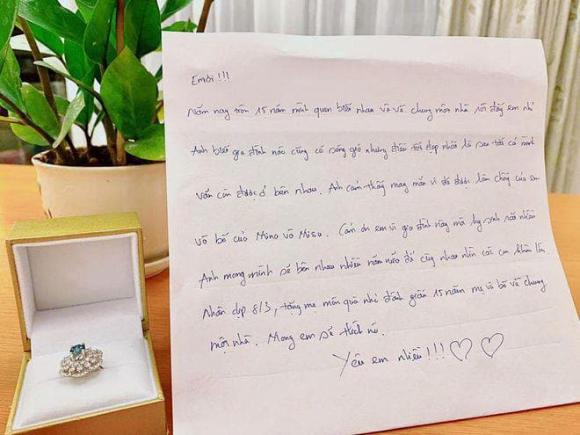 Em ơi!!!
Năm nay tròn 15 năm mình quen biết nhau và về chung một nhà rồi đấy em nhỉ
Anh biết gia đình nào cũng có sóng gió nhưng điều tốt đẹp nhất là sau tất cả mình
vẫn còn được ở bên nhau. Anh cảm thấy may mắn vì đã được làm chồng của em
và bố của Mino và Misu. Cám ơn em vì gia đình này mà hy sinh rất nhiều
Anh mong mình sẽ bên nhau nhiều năm nữa để cùng nhau nhìn các con khôn lớn.
Nhân dịp 8/3, tặng mẹ món quà nhỏ đánh dấu 15 năm mẹ và bố về chung
một nhà. Mong em sẽ thích nó.
Yêu em nhiều!!! ♡ ♡